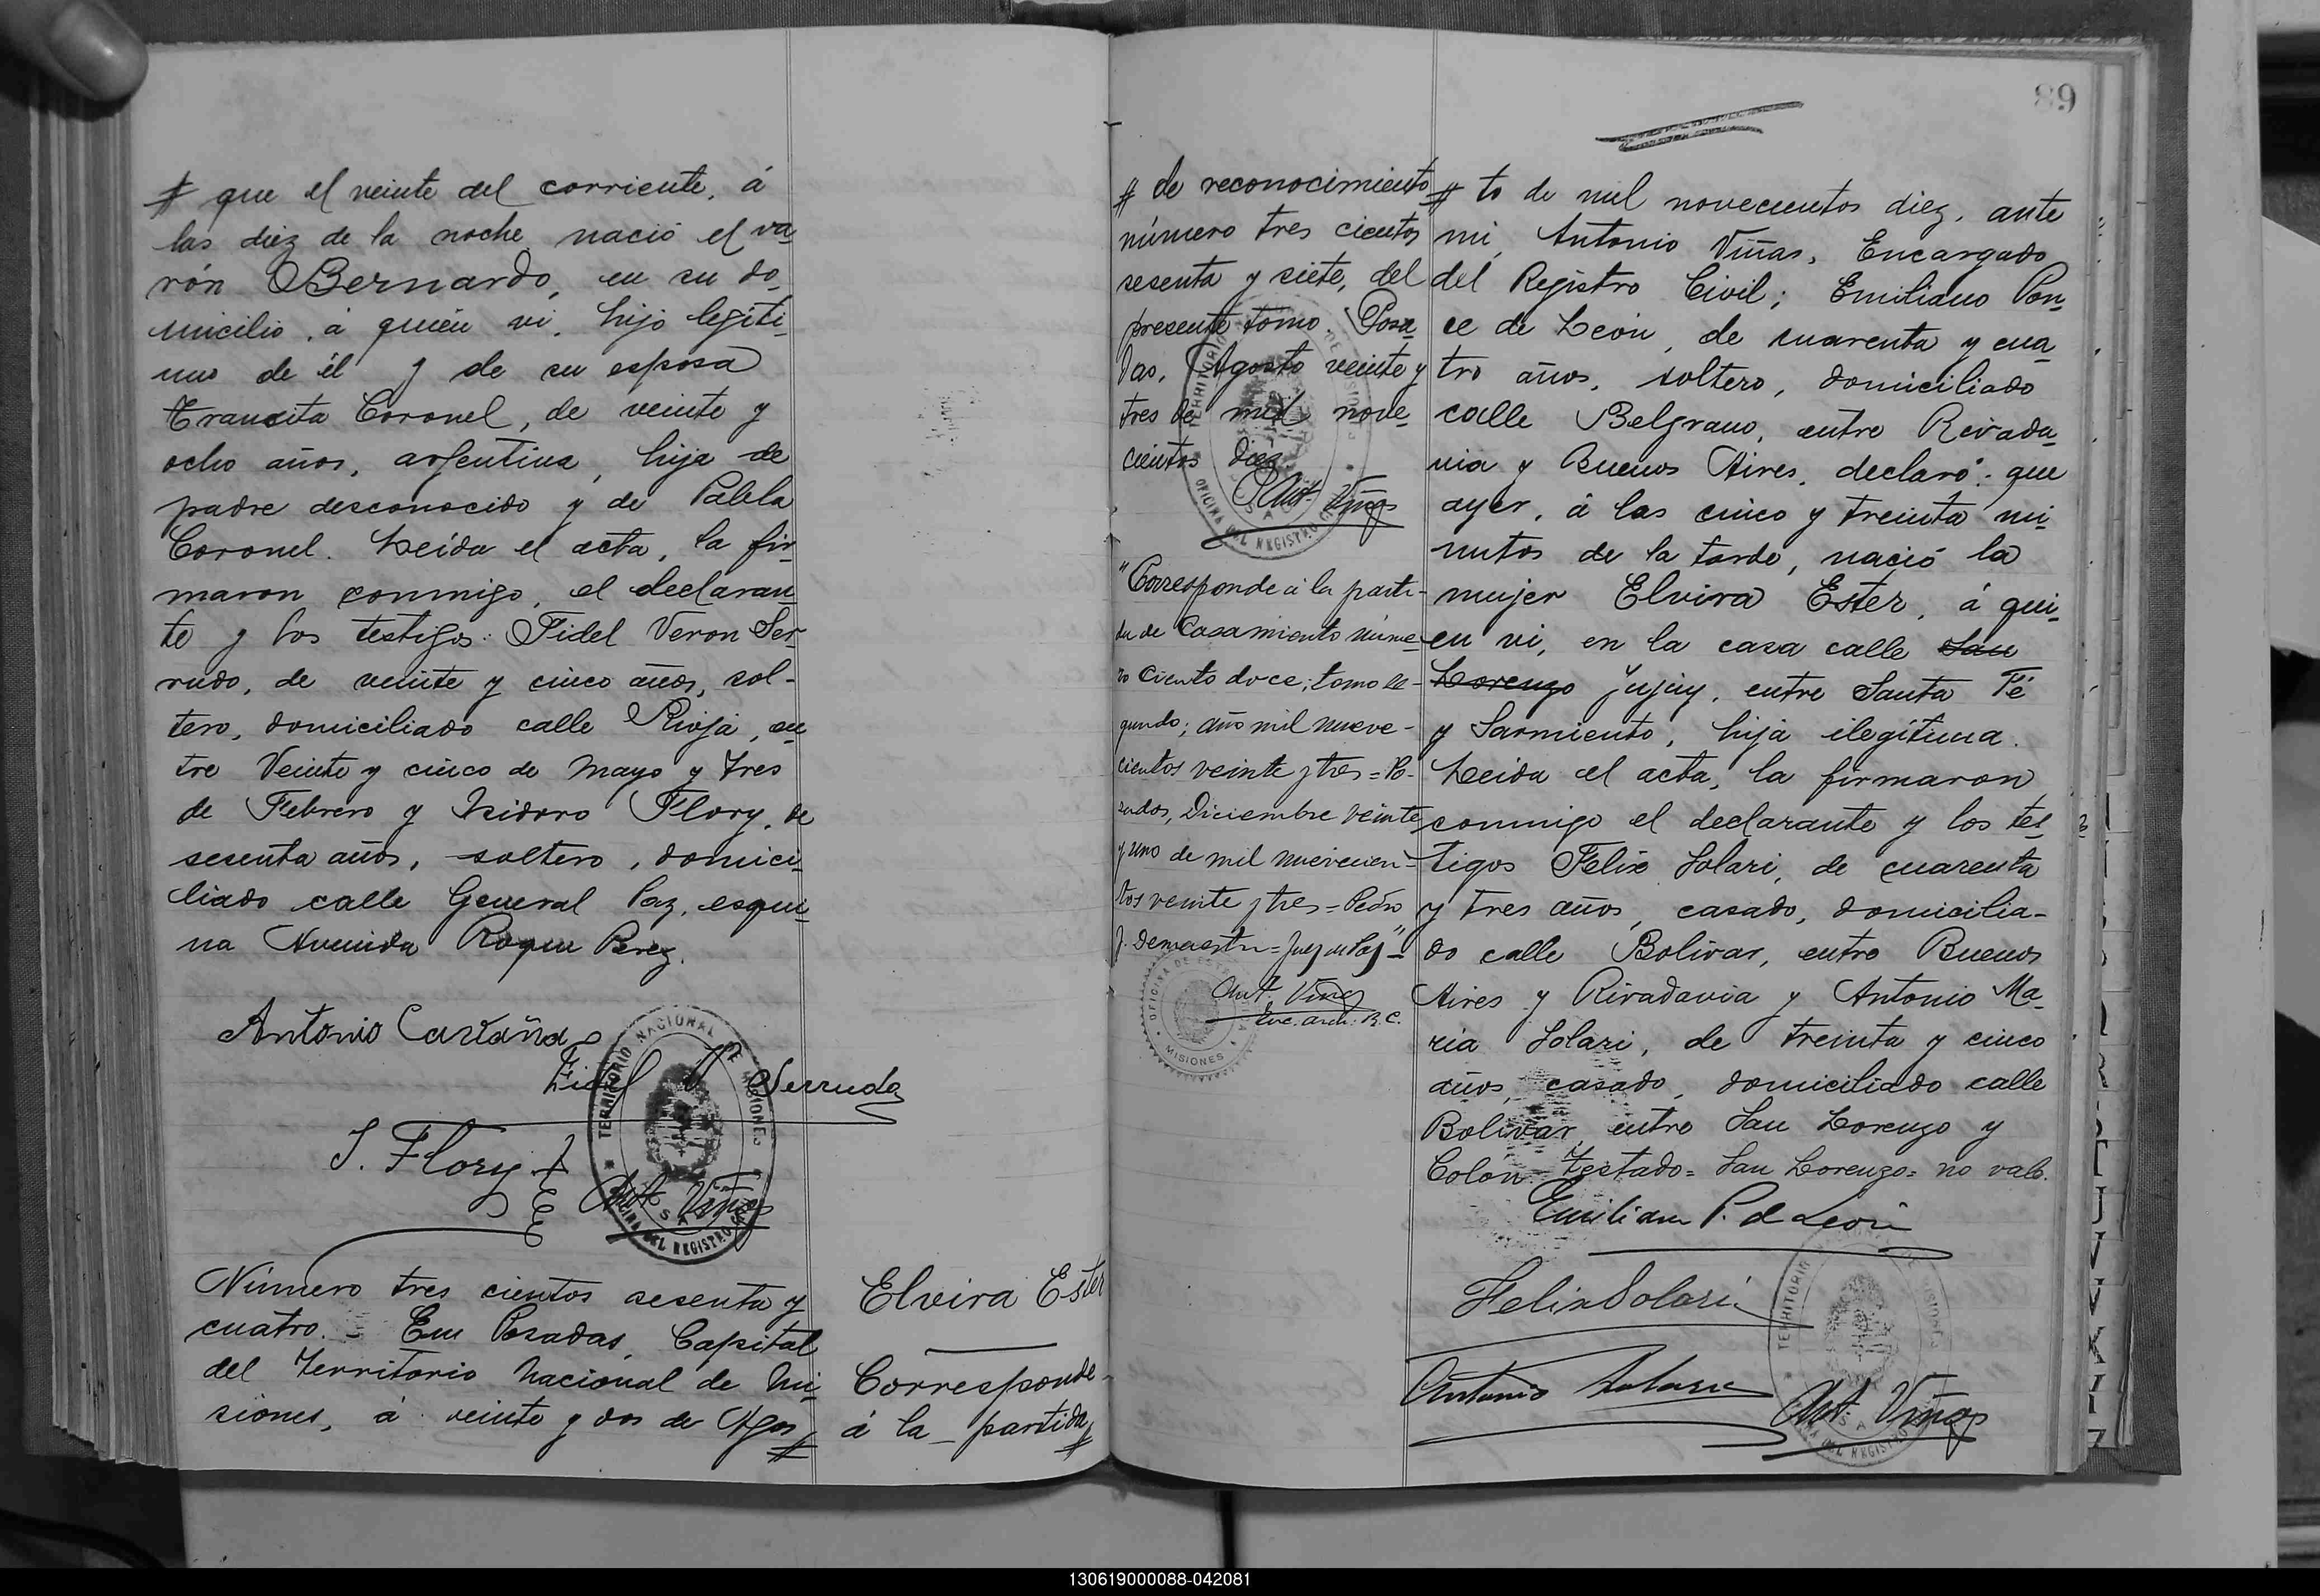 # que el veinte del corriente, á
las diez de la noche nació el va-
rón Bernardo, en su do-
micilio, á quien vi, hijo legíti-
mo de él y de su esposa
Transita Coronel, de veinte y
ocho años, argentina, hija de
padre desconocido y de Pabla
Coronel. Leida el acta, la fir-
maron conmigo, el declaran-
te y los testigos: Fidel Veron Ser-
rudo, de veinte y cinco años, sol-
tero, domiciliado calle Rioja, en-
tre Veinte y cinco de Mayo y Tres
de Febrero y Isidoro Flory, de
sesenta años, soltero, domici-
liado calle General Paz, esqui-
na Avenida Roque Perez.
Antonio Castaña
Fidel V Serrudo
I. Flory
Ant. Viñas
TERRITORIO NACIONAL DE MISIONES
OFICINA DEL REGISTRO CIVIL
Número tres cientos sesenta y
cuatro. - En Posadas, Capital
del Territorio Nacional de Mi-
siones, á veinte y dos de Agos #
Elvira Ester
Corresponde
á la partida #
# de reconocimiento
número tres cientos
sesenta y siete, del
presente tomo. Posa-
das, Agosto veinte y
tres de mil nove-
cientos diez
Ant. Viñas
"Corresponde á la parti-
da de Casamiento núme-
ro Ciento doce; tomo se-
gundo; año mil nueve-
cientos veinte y tres = Po-
sadas, Diciembre veinte
y uno de mil nuevecien-
tos veinte y tres = Pedro
J. = Juez de Paz" =
Ant. Viñas
Enc. arch. R. C.
OFICINA DE
MISIONES
89
# to de mil novecientos diez, ante
mi, Antonio Viñas, Encargado
del Registro Civil; Emiliano Pon-
ce de León, de cuarenta y cua-
tro años, soltero, domiciliado
calle Belgrano, entre Rivada-
via y Buenos Aires, declaró: que
ayer, á las cinco y treinta mi-
nutos de la tarde, nació la
mujer Elvira Ester, á qui-
en vi, en la casa calle San
Lorenzo Jujuy, entre Santa Fé
y Sarmiento, hija ilegítima.
Leida el acta, la firmaron
conmigo el declarante y los tes-
tigos Felix Solari, de cuarenta
y tres años, casado, domicilia-
do calle Bolivar, entre Buenos
Aires y Rivadavia y Antonio Ma-
ria Solari, de treinta y cinco
años, casado, domiciliado calle
Bolivar, entre San Lorenzo y
Colon = Testado = San Lorenzo = no vale.
Emiliano P. de León
Felix Solari
Antonio Solari
Ant. Viñas
130619000088-042081